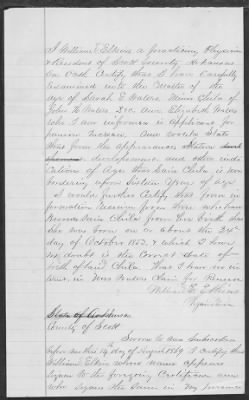 I William E. Elkins a practicing Physician
& Resident of Scott County, Arkansas
On Oath Certify that I have Carefully
Examined into the Matter of the
age of Sarah E Waters, Minor Child of
John H Waters Dec. and Elizabeth Waters
who I am informed is applicant for
pension Increase. And would State
that from the appearances Stature
development and other indi
cations of Age that Said Child is now
bordering upon Sixteen Years of age
I would further Certify that from in
formation received from those who have
known Said Child from her birth that
she was born on or about the 2nd
day of October 1852, & which I have
no doubt is the Correct date of
birth of Said Child. That I have no in
terest in
William E. Elkins
Physician
State of Arkansas
County of Scott
Sworn to and Subscribed
before me this 14 day of August 1869 I Certify that
William E Elkins whose name appears
signed to the foregoing Certificate and
who signed the same in my presence